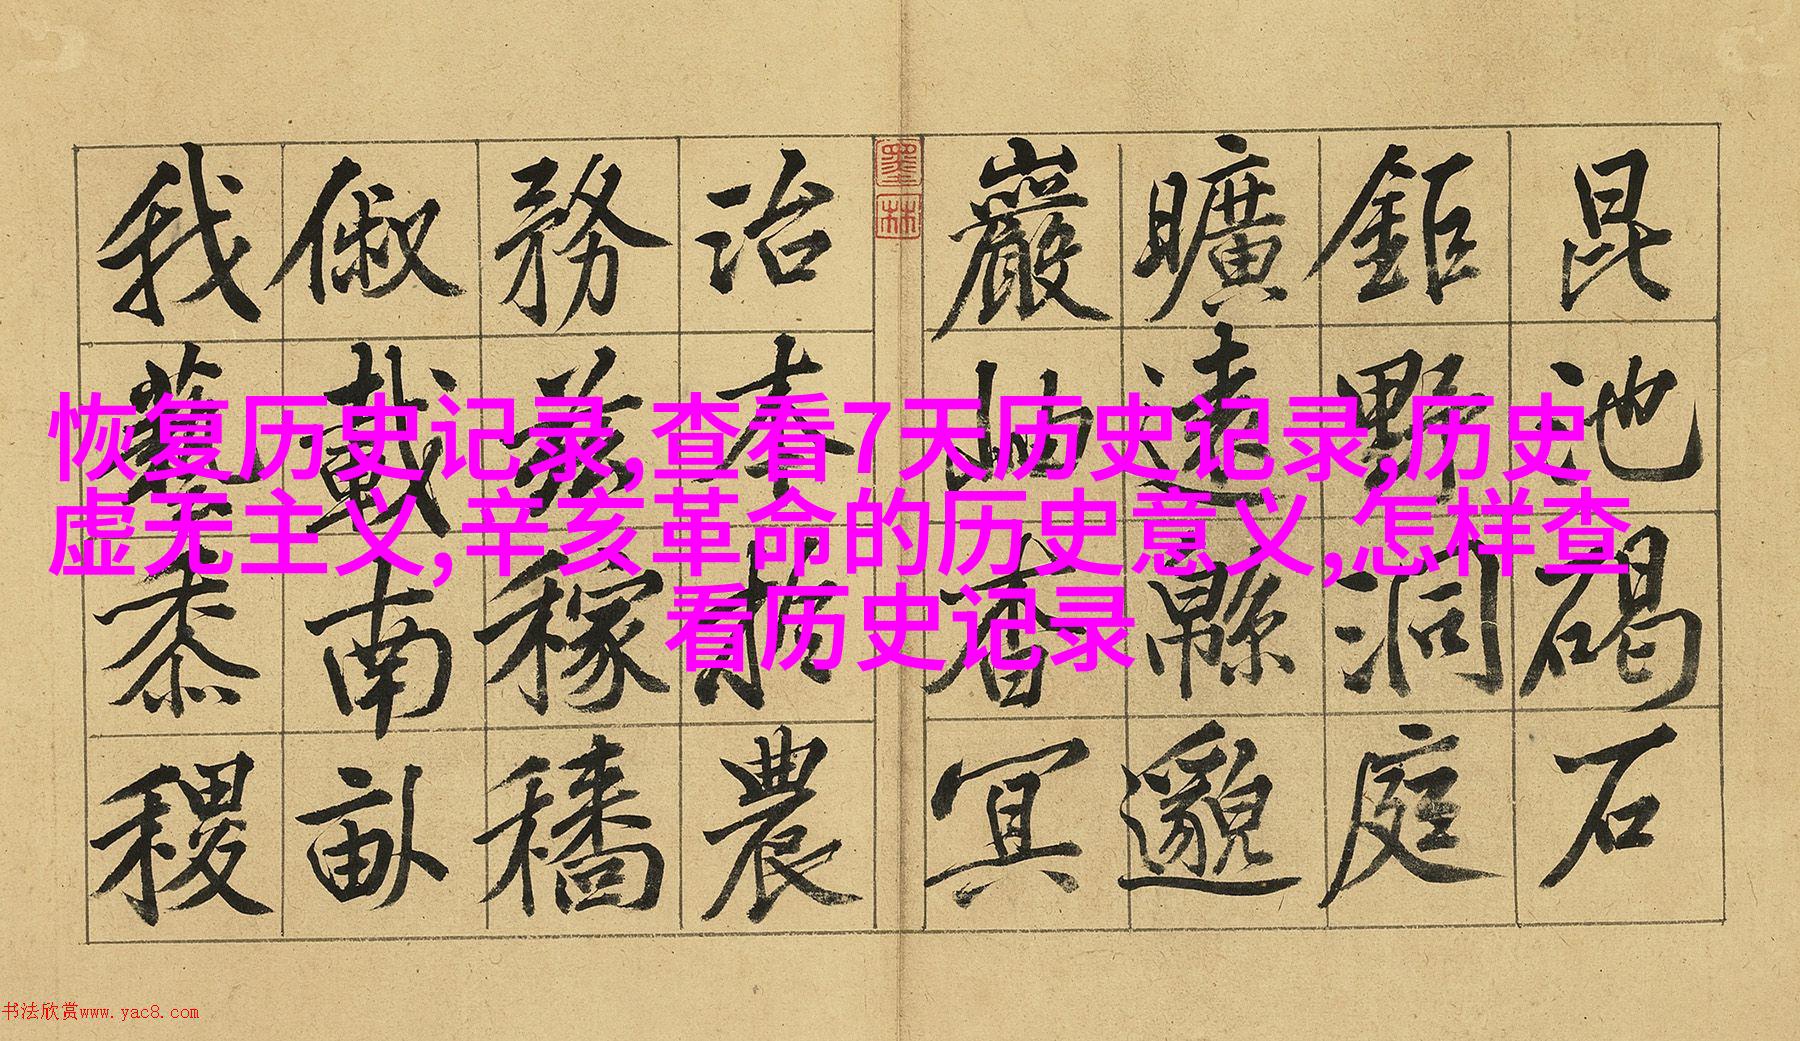 恢复历史记录,查看7天历史记录,历史
虚无主义,辛亥革命的历史意义,怎样查
看历史记录
昆池碣石
鉅野洞庭
曠遠緜邈
巖岫杳冥
墨林
治本於農
務茲稼穡
俶載南畝
我藝黍稷
书法欣赏www.yac8.com